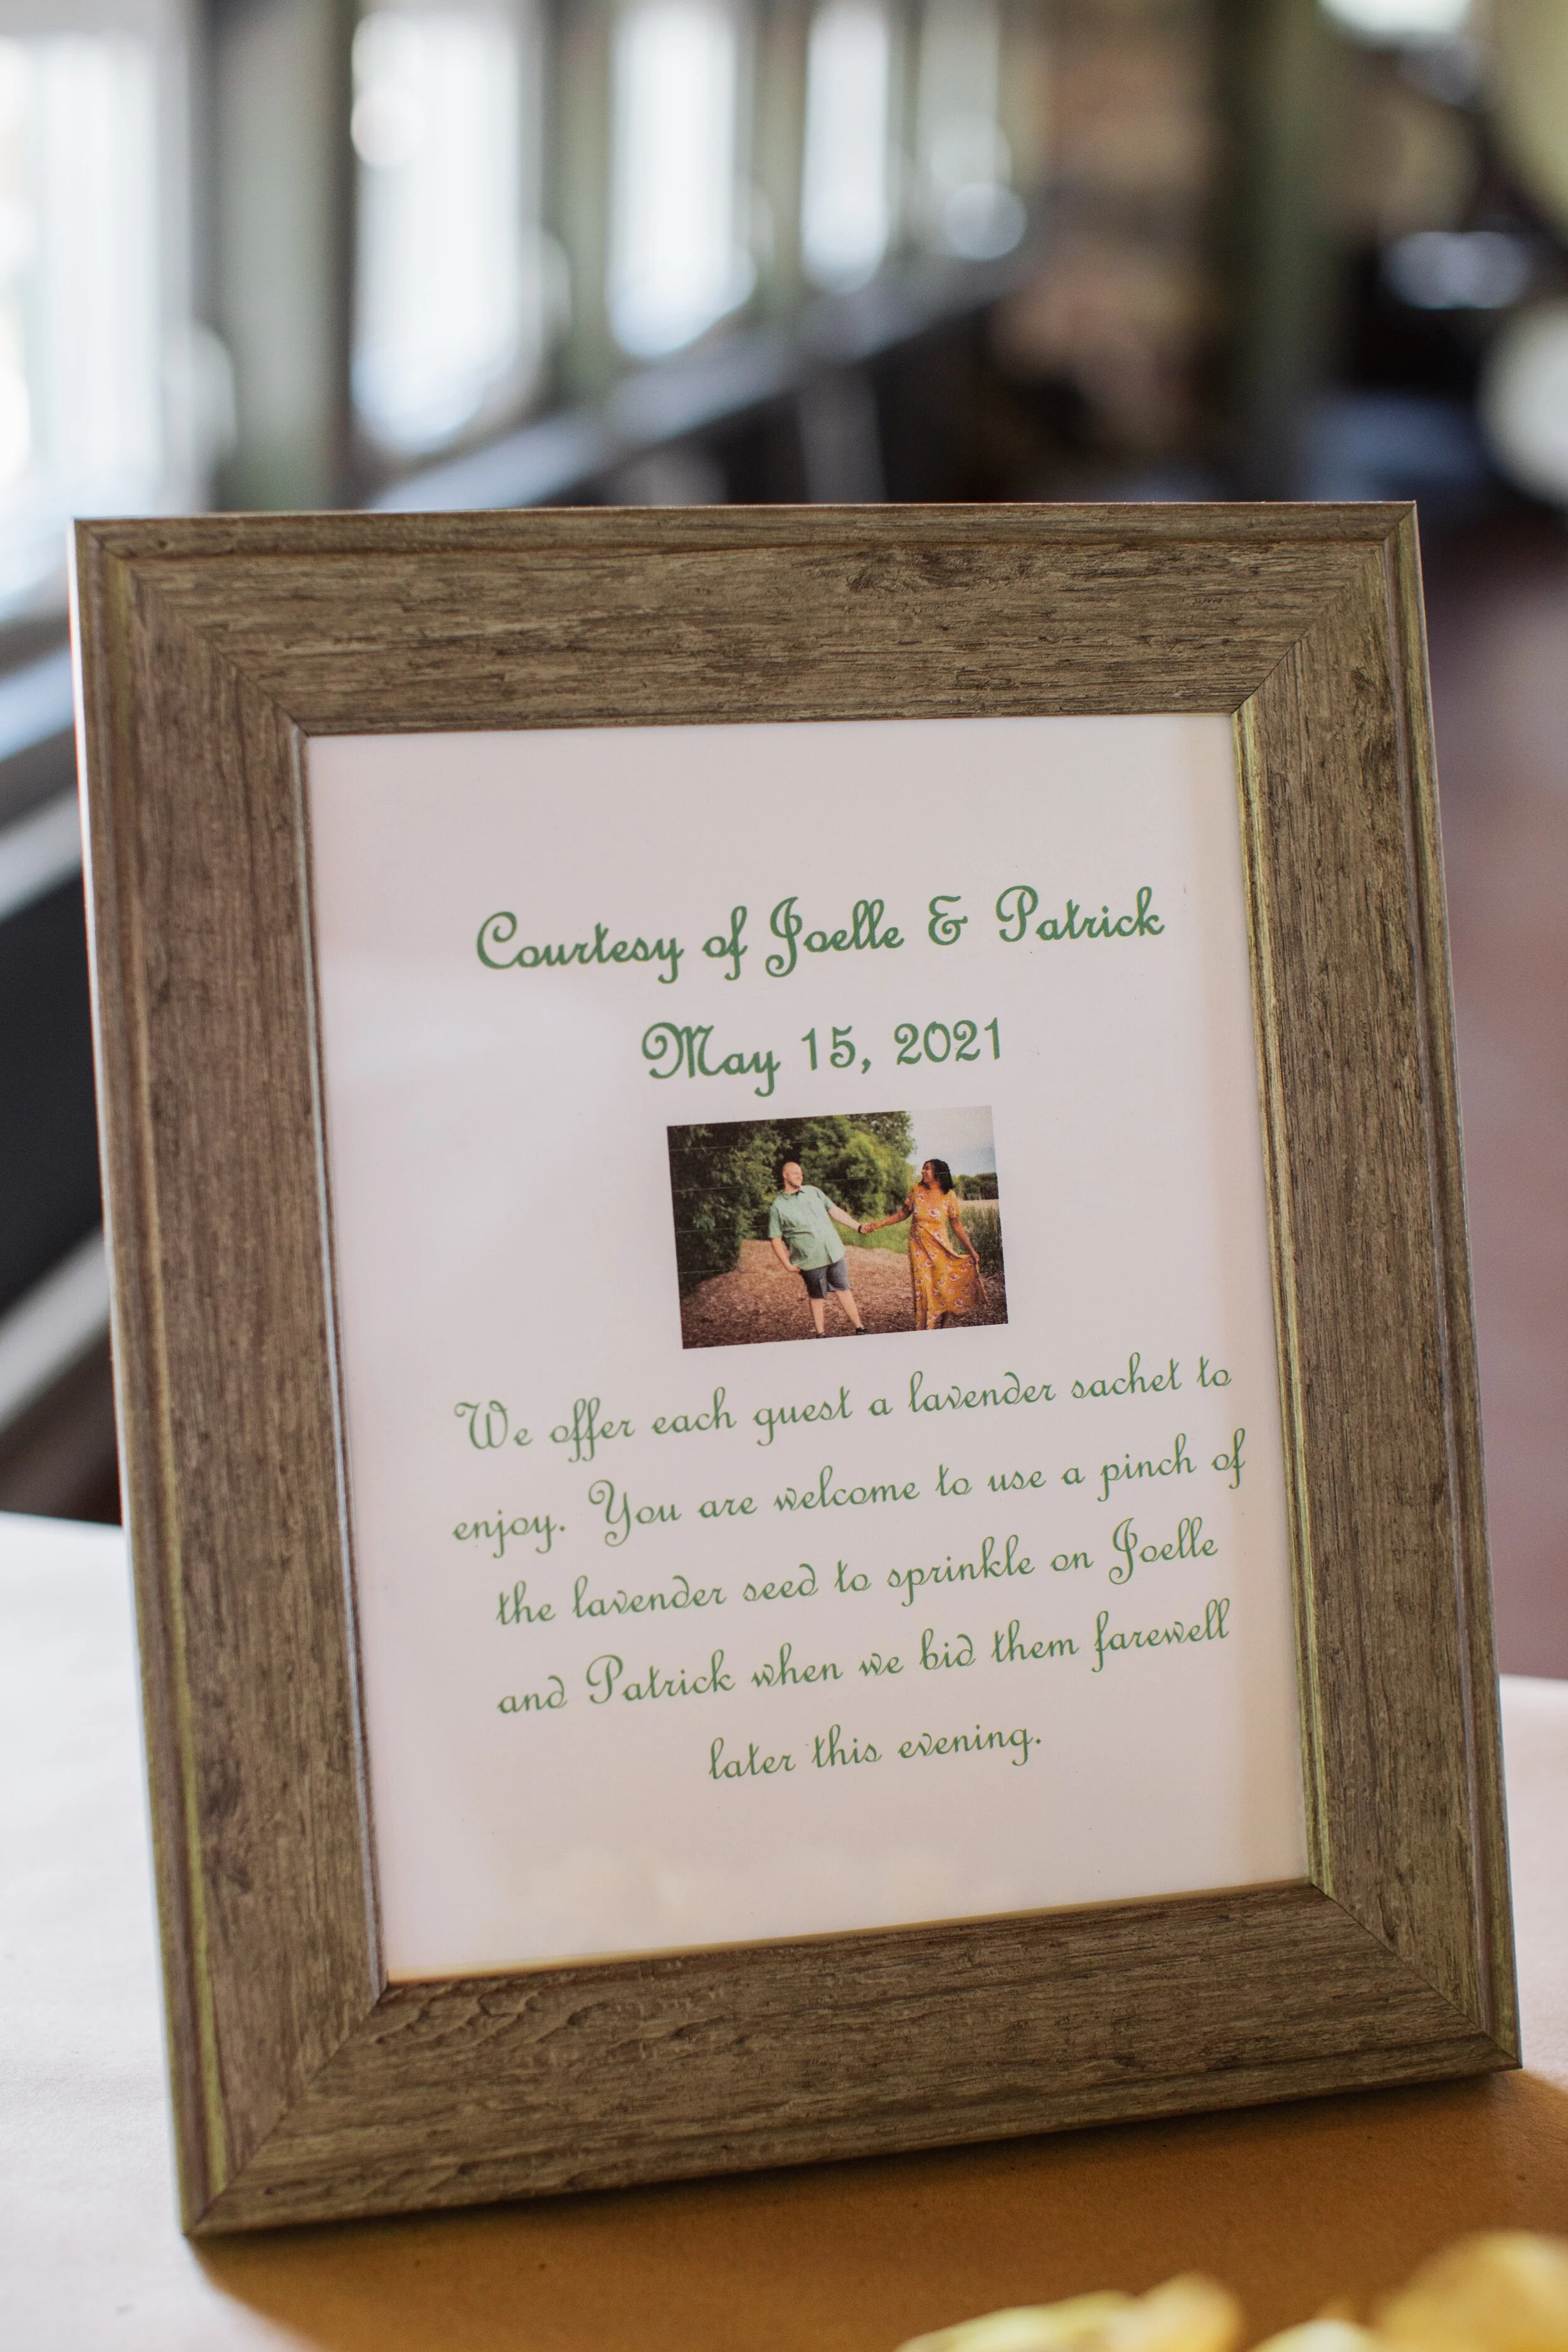 Courtesy of Joelle & Patrick
May 15, 2021
We offer each guest a lavender sachet to
enjoy. You are welcome to use a pinch of
the lavender seed to sprinkle on Joelle
and Patrick when we bid them farewell
later this evening.